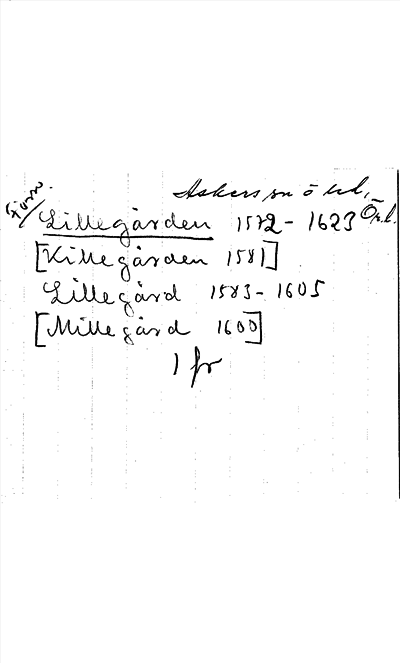 Askers sn ö hd,
Forn.
Lillegården 1572-1623 Ör.l.
[Killegården 1581]
Lillegård 1583-1605
[Millegård 1600]
1 fr